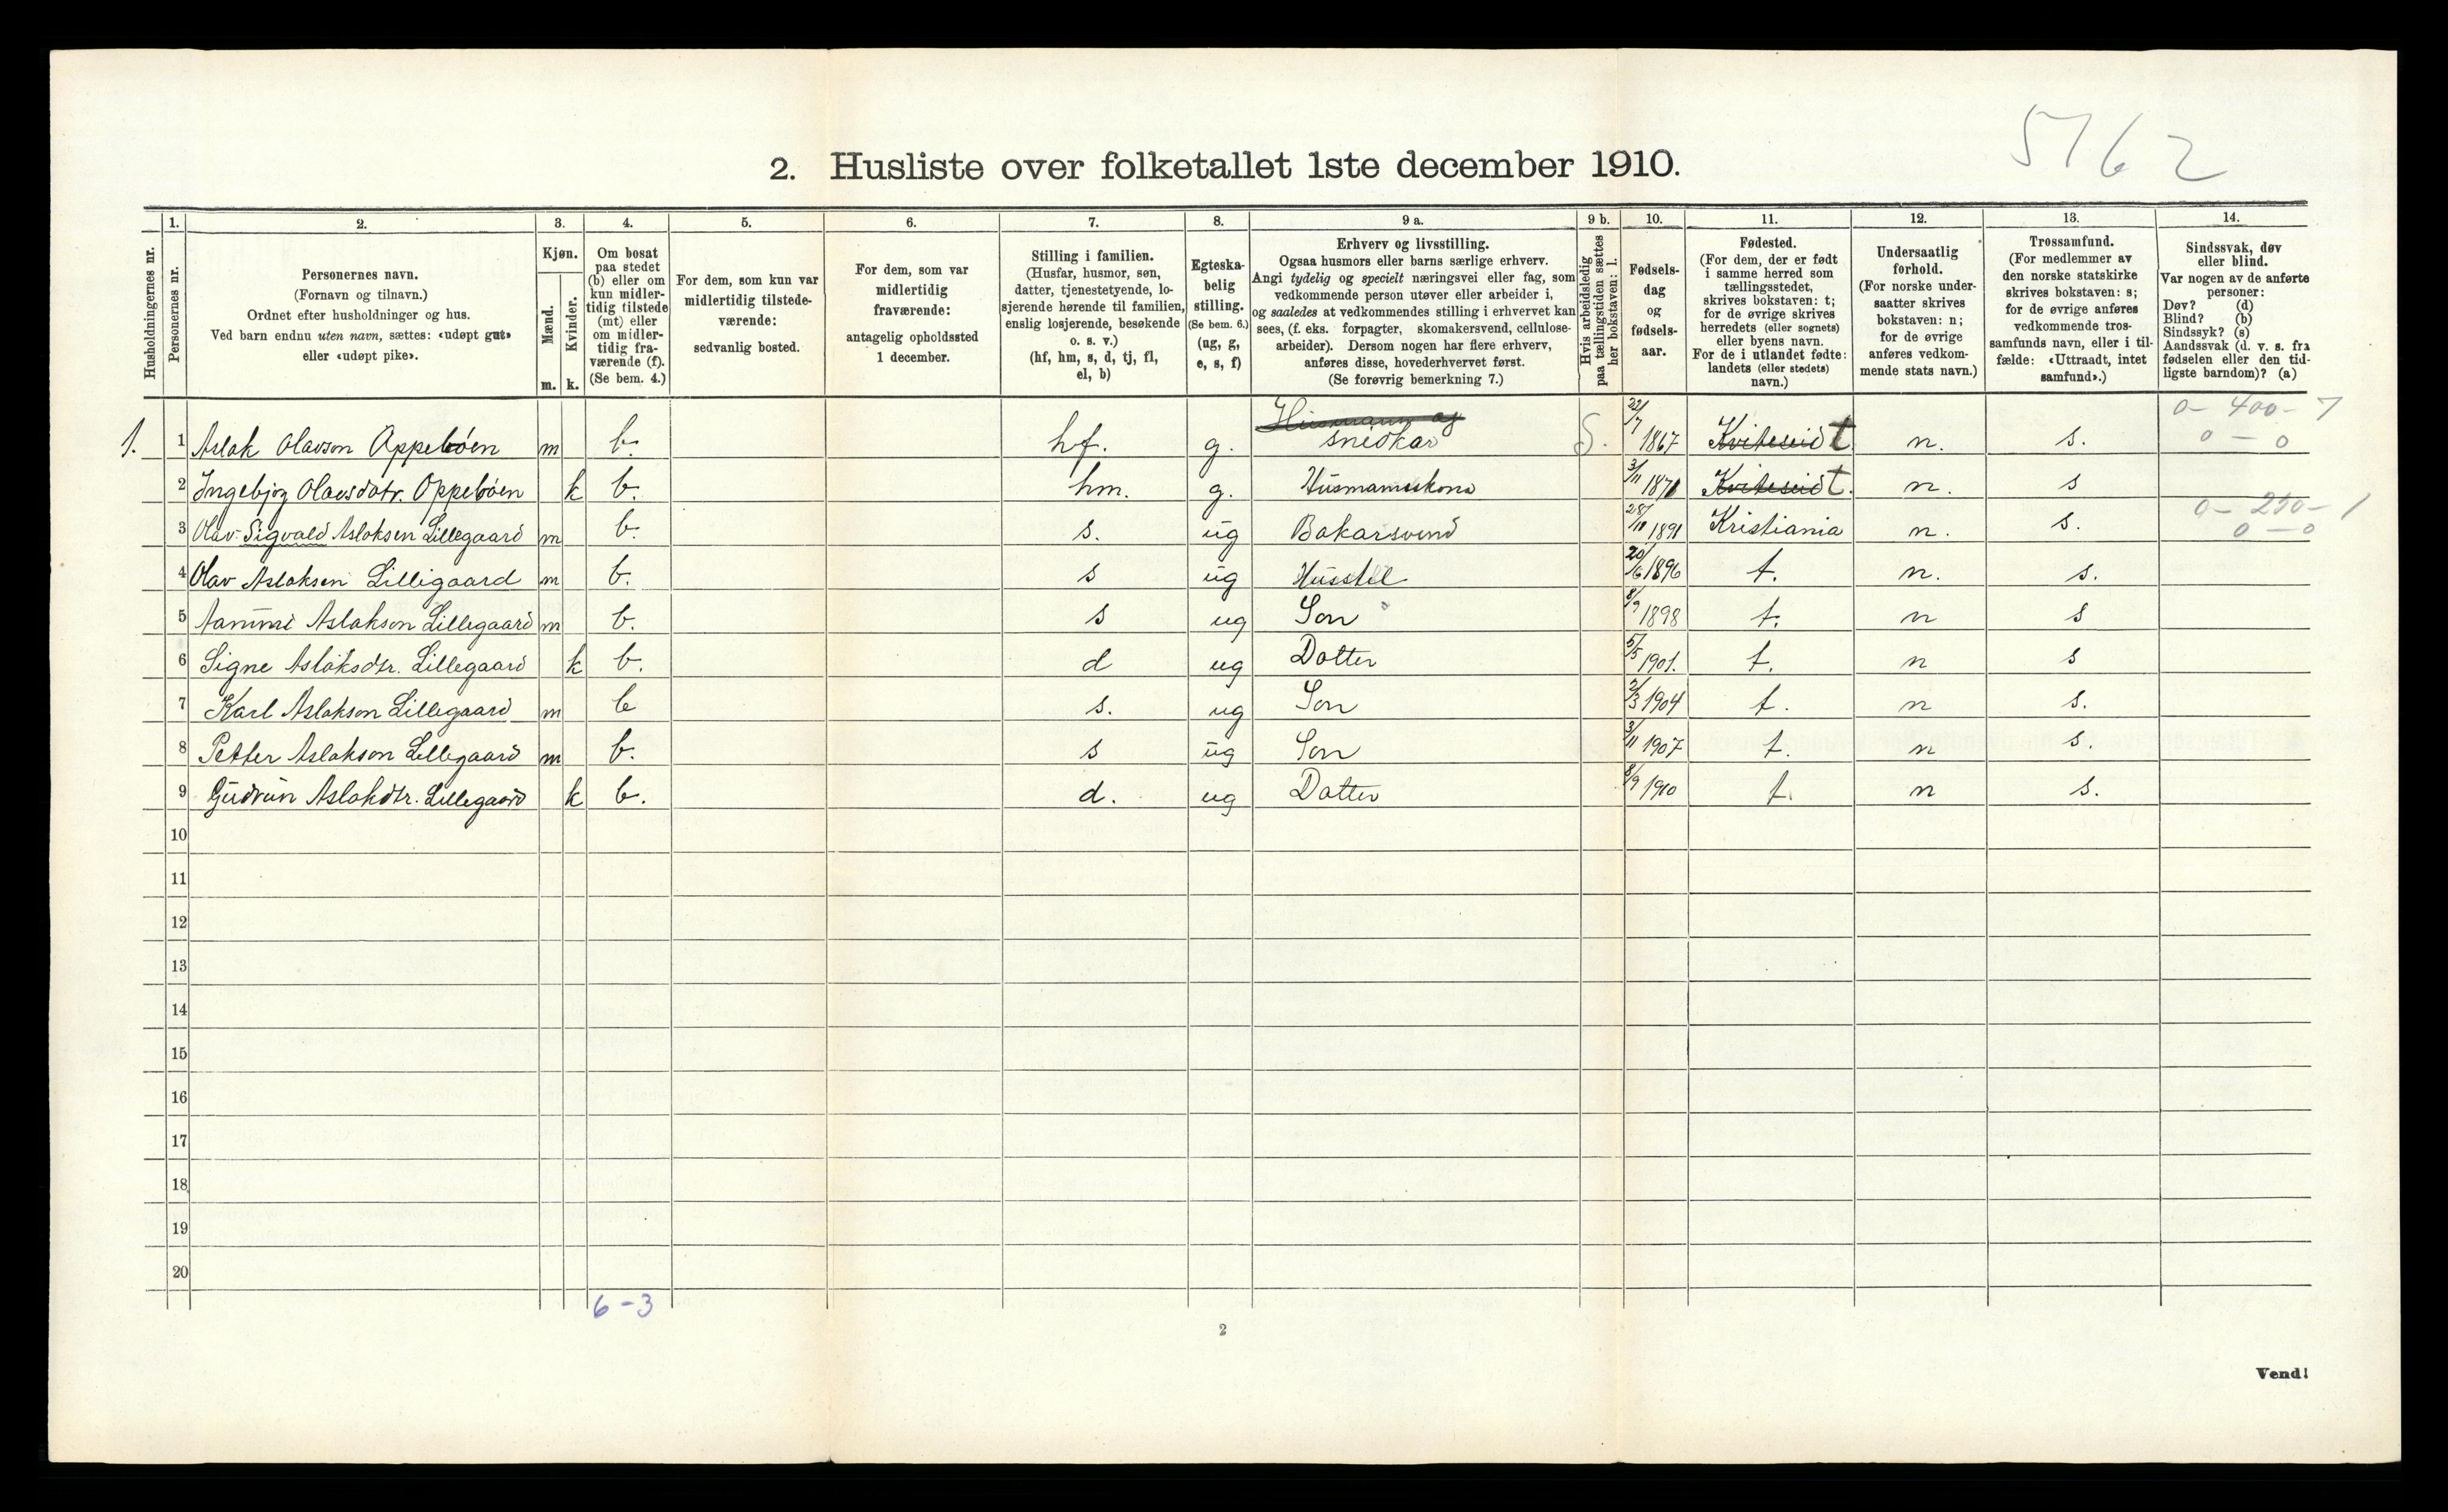 5162
2. Husliste over folketallet 1ste december 1910.
Husholdningernes nr.
1.
Personernes nr.
2.
Personernes navn.
(Fornavn og tilnavn.)
Ordnet efter husholdninger og hus.
Ved barn endnu uten navn, sættes: «udøpt gut»
eller «udøpt pike».
3.
Kjøn.
Mænd.
Kvinder.
m.
k.
4.
Om bosat
paa stedet
(b) eller om
kun midler-
tidig tilstede
(mt) eller
om midler-
tidig fra-
værende (f).
(Se bem. 4.)
5.
For dem, som kun var
midlertidig tilstede-
værende:
sedvanlig bosted.
6.
For dem, som var
midlertidig
fraværende:
antagelig opholdssted
1 december.
7.
Stilling i familien.
(Husfar, husmor, søn,
datter, tjenestetyende, lo-
sjerende hørende til familien,
enslig losjerende, besøkende
o. s. v.)
(hf, hm, s, d, tj, fl,
el, b)
8.
Egteska-
belig
stilling.
(Se bem. 6.)
(ug, g,
e, s, f)
9 a.
Erhverv og livsstilling.
Ogsaa husmors eller barns særlige erhverv.
Angi tydelig og specielt næringsvei eller fag, som
vedkommende person utøver eller arbeider i,
og saaledes at vedkommendes stilling i erhvervet kan
sees, (f. eks. forpagter, skomakersvend, cellulose-
arbeider). Dersom nogen har flere erhverv,
anføres disse, hovederhvervet først.
(Se forøvrig bemerkning 7.)
9 b.
Hvis arbeidsledig
paa tællingstiden sættes
her bokstaven: l.
10.
Fødsels-
dag
og
fødsels-
aar.
11.
Fødested.
(For dem, der er født
i samme herred som
tællingsstedet,
skrives bokstaven: t;
for de øvrige skrives
herredets (eller sognets)
eller byens navn.
For de i utlandet fødte:
landets (eller stedets)
navn.)
12.
Undersaatlig
forhold.
(For norske under-
saatter skrives
bokstaven: n;
for de øvrige
anføres vedkom-
mende stats navn.)
13.
Trossamfund.
(For medlemmer av
den norske statskirke
skrives bokstaven: s;
for de øvrige anføres
vedkommende tros-
samfunds navn, eller i til-
fælde: «Uttraadt, intet
samfund».)
14.
Sindssvak, døv
eller blind.
Var nogen av de anførte
personer:
Døv? (d)
Blind? (b)
Sindssyk? (s)
Aandssvak (d. v. s. fra
fødselen eller den tid-
ligste barndom)? (a)
Husmann og 0 - 400 - 7
1. 1 Aslak Olavson Oppebøen m b. hf. g. snedkar S. 22/7 1867 Kviteseid t n. s. 0 - 0
2 Ingebjog Olavsdotr. Oppebøen k b. hm. g. Husmannskona 3/11 1871 Kviteseid t. n. s
0 - 250 - 1
3 Olav Sigvald Aslaksen Lillegaard m b. s. ug Bakarsvend 28/10 1891 Kristiania n. s. 0 - 0
4 Olav Aslaksen Lilligaard m b. s ug Husstel 20/6 1896 t. n. s.
5 Aslakson Lillegaard m b. s ug Son 8/9 1898 t. n s
6 Signe Aslaksdtr. Lillegaard k b. d ug Dotter 5/5 1901. t. n s
7 Karl Aslakson Lillegaard m b s. ug Son 2/3 1904 t. n s.
8 Petter Aslakson Lillegaard m b. s ug Son 3/11 1907 t. n s.
9 Gudrun Aslakdtr. Lillegaard k b. d. ug Dotter 8/9 1910 t. n s.
10
11
12
13
14
15
16
17
18
19
20
6 - 3
2
Vend!